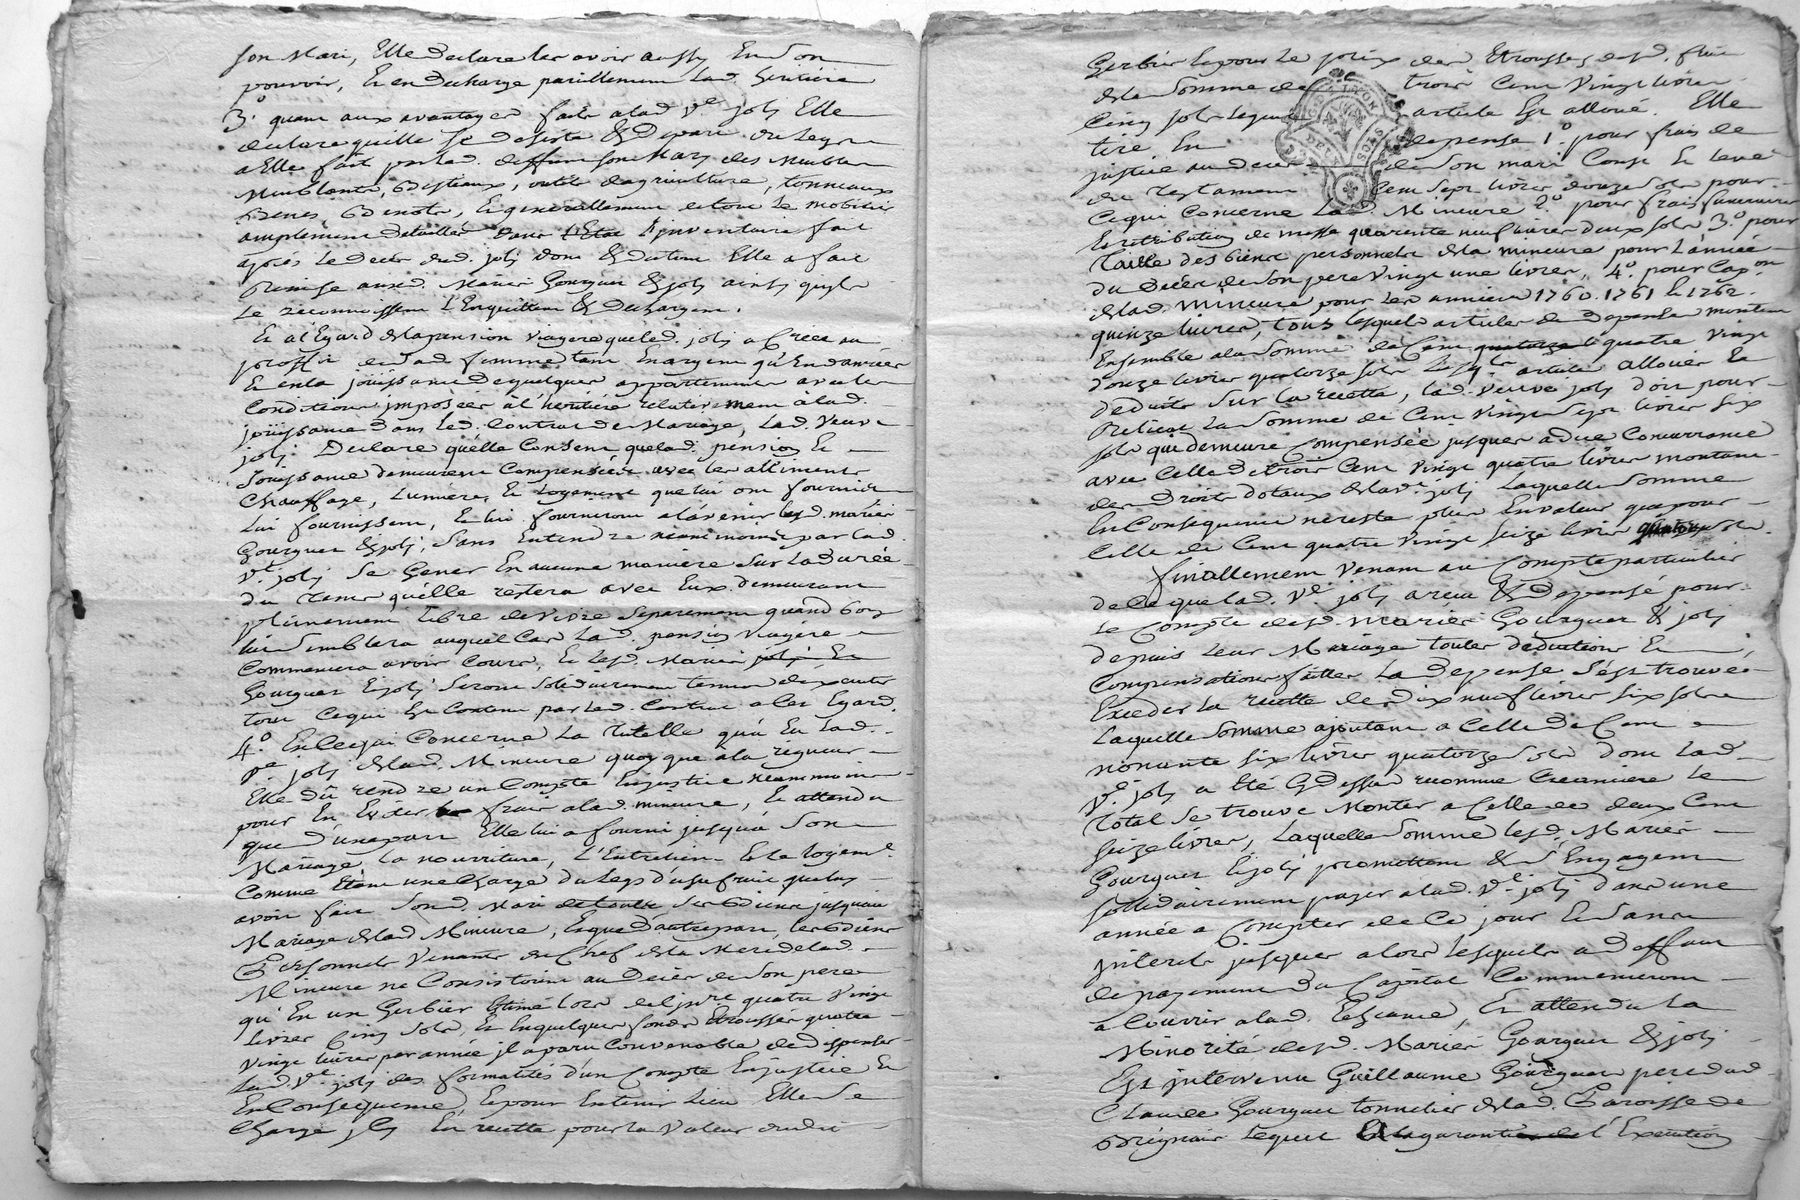 son Mari, Elle declare les avoir aussy En son
pouvoir, Et en decharge pareillement lad. heritiere
3.º quant aux avantages faits a lad. v.e joly Elle
declare quelle se desiste & depart du Legs
a Elle fait par led. deffunt son Mary des Meubles
Meublants, Bestiaux, outils dagriculture, tonneaux
Benes, & generallement de tout le mobilier
amplement detaillés dans L'inventaire fait
après Le deces dud. joly dont & du tout Elle a fait
Remise auxd. Mariés Gourguet & joly ainsy quils
le reconnoissent L'Enquittent & dechargent.
Et a l'Egard de la pension viagere que led. joly a Creée au
proffit de sad. femme tant En argent qu'En danrées
Et en la joüissance de quelques appartements avec les
Conditions imposées à l'heritiere relativement à lad.
joüissance dans led. Contrat de Mariage, Lad. Veuve
joly Declare quélle Consent que lad. pension Et
Joüissance demeurent Compensées avec les alliments
Chauffage, Lumiere, Et Logement que lui ont fournis
Lui fournissent, Et lui fourniront a lávenir lesd. mariés
Gourguet & joly, sans Entendre neantmoins par lad.
v.e joly se Gener En aucune maniere sur La durée
du tems qu'élle restera avec Eux demeurant
pleinement libre de vivre separement quand bon
lui semblera auquel Cas Lad. pension viagere
Commencera avoir Cours, Et lesd. Mariés joly Et
Gourguet & joly seront solidairement tenus dexecuter
tout Ce qui Est Contenu par led. Contrat a Cet Egard.
4.º En Ce qui Concerne La tutelle qu'a Eu Lad.
v.e joly de lad. Mineure quoy que a la rigueur
Elle dû rendre un Compte En justice neanmoins
pour En Eviter les frais a lad. mineure, Et attendu
que d'une part Elle lui a fourni jusqu'a son
Mariage la nourriture, L'Entretien Et le logem.t
Comme Etant une Charge du Legs d'usufruit que luy
avoit fait sond. Mari de toutts ses Biens jusquau
Mariage de lad. Mineure, Et que d'autre part, les Biens
Personnels Venants du Chef de la Mere de lad.
Mineure ne Consistoient au Deces de son pere
qu'En un Gerbier Estimé lors de linv.re quatre Vingt
Livres Cinq Sols, Et En quelques fonds Etroussés quatre
Vingt livres par année il a paru Convenable de dispenser
Lad. v.e joly des formalités d'un Compte En justice Et
En Consequence, Et pour En tenir Lieu Elle se
Charge icy En recette pour la Valeur dudit
Gerbier Et pour Le prix des Etrousses desd. fonds
de la somme de trois Cent Vingt livres
Cinq sols lequel article Est alloué. Elle
tire En depense 1.º pour frais de
justice au deces de son mari Coust Et levé
du testament Cent sept livres douze sols pour
Ce qui Concerne La Mineure 2.º pour frais funeraires
Et retribution de messe quarente neuf livres deux sols 3.º pour
Taille des biens personnels de la mineure pour L'année
du Deces de son pere Vingt une livres, 4.º pour Cap.on
de lad. Mineure pour les années 1760. 1761 & 1762.
quinze livres, tous lesquels articles de Depense montent
Ensemble a la somme de Cent quatorze quatre vingt
douze livres quatorze sols Lesq.ls articles alloués Et
deduits sur La recette, lad. veuve joly doit pour
Reliquat La somme de Cent Vingt sept livres six
sols qui demeure Compensée jusques a due Concurrance
avec Celle de trois Cent vingt quatre livres montant
des Droits dotaux de lad. v.e joly Laquelle somme
En Consequence ne reste plus En valeur que pour
Celle de Cent quatre vingt seize livres quatorze sols.
finallement venant au Compte particulier
de Ce que lad. v.e joly a reçu & depensé pour
le Compte desd. mariés Gourguet & joly
depuis leur Mariage toutes deductions Et
Compensations faittes La depense s'est trouvée
Exceder La recette de dix neuf livres six sols
Laquelle somme ajoutant a Celle de Cent
nonante six livres quatorze sols dont Lad.
v.e joly a Eté Cy dessus reconnue Creanciere le
Total se trouve Monter a Celle de deux Cent
seize livres, Laquelle somme lesd. Mariés
Gourguet & joly promettent & s'Engagent
sollidairement payer a lad. v.e joly dans une
année a Compter de Ce jour Et sans
interets jusques alors lesquels a deffaut
de payement du Capital Commenceront
a Courrir a lad. Echeance, Et attendu La
Minorité desd. Mariés Gourguet & joly
Est intervenu Guillaume Gourguet pere dud.
Claude Gourguet tonnelier de lad. Paroisse de
Brignais Lequel a la garantie de l'Execution